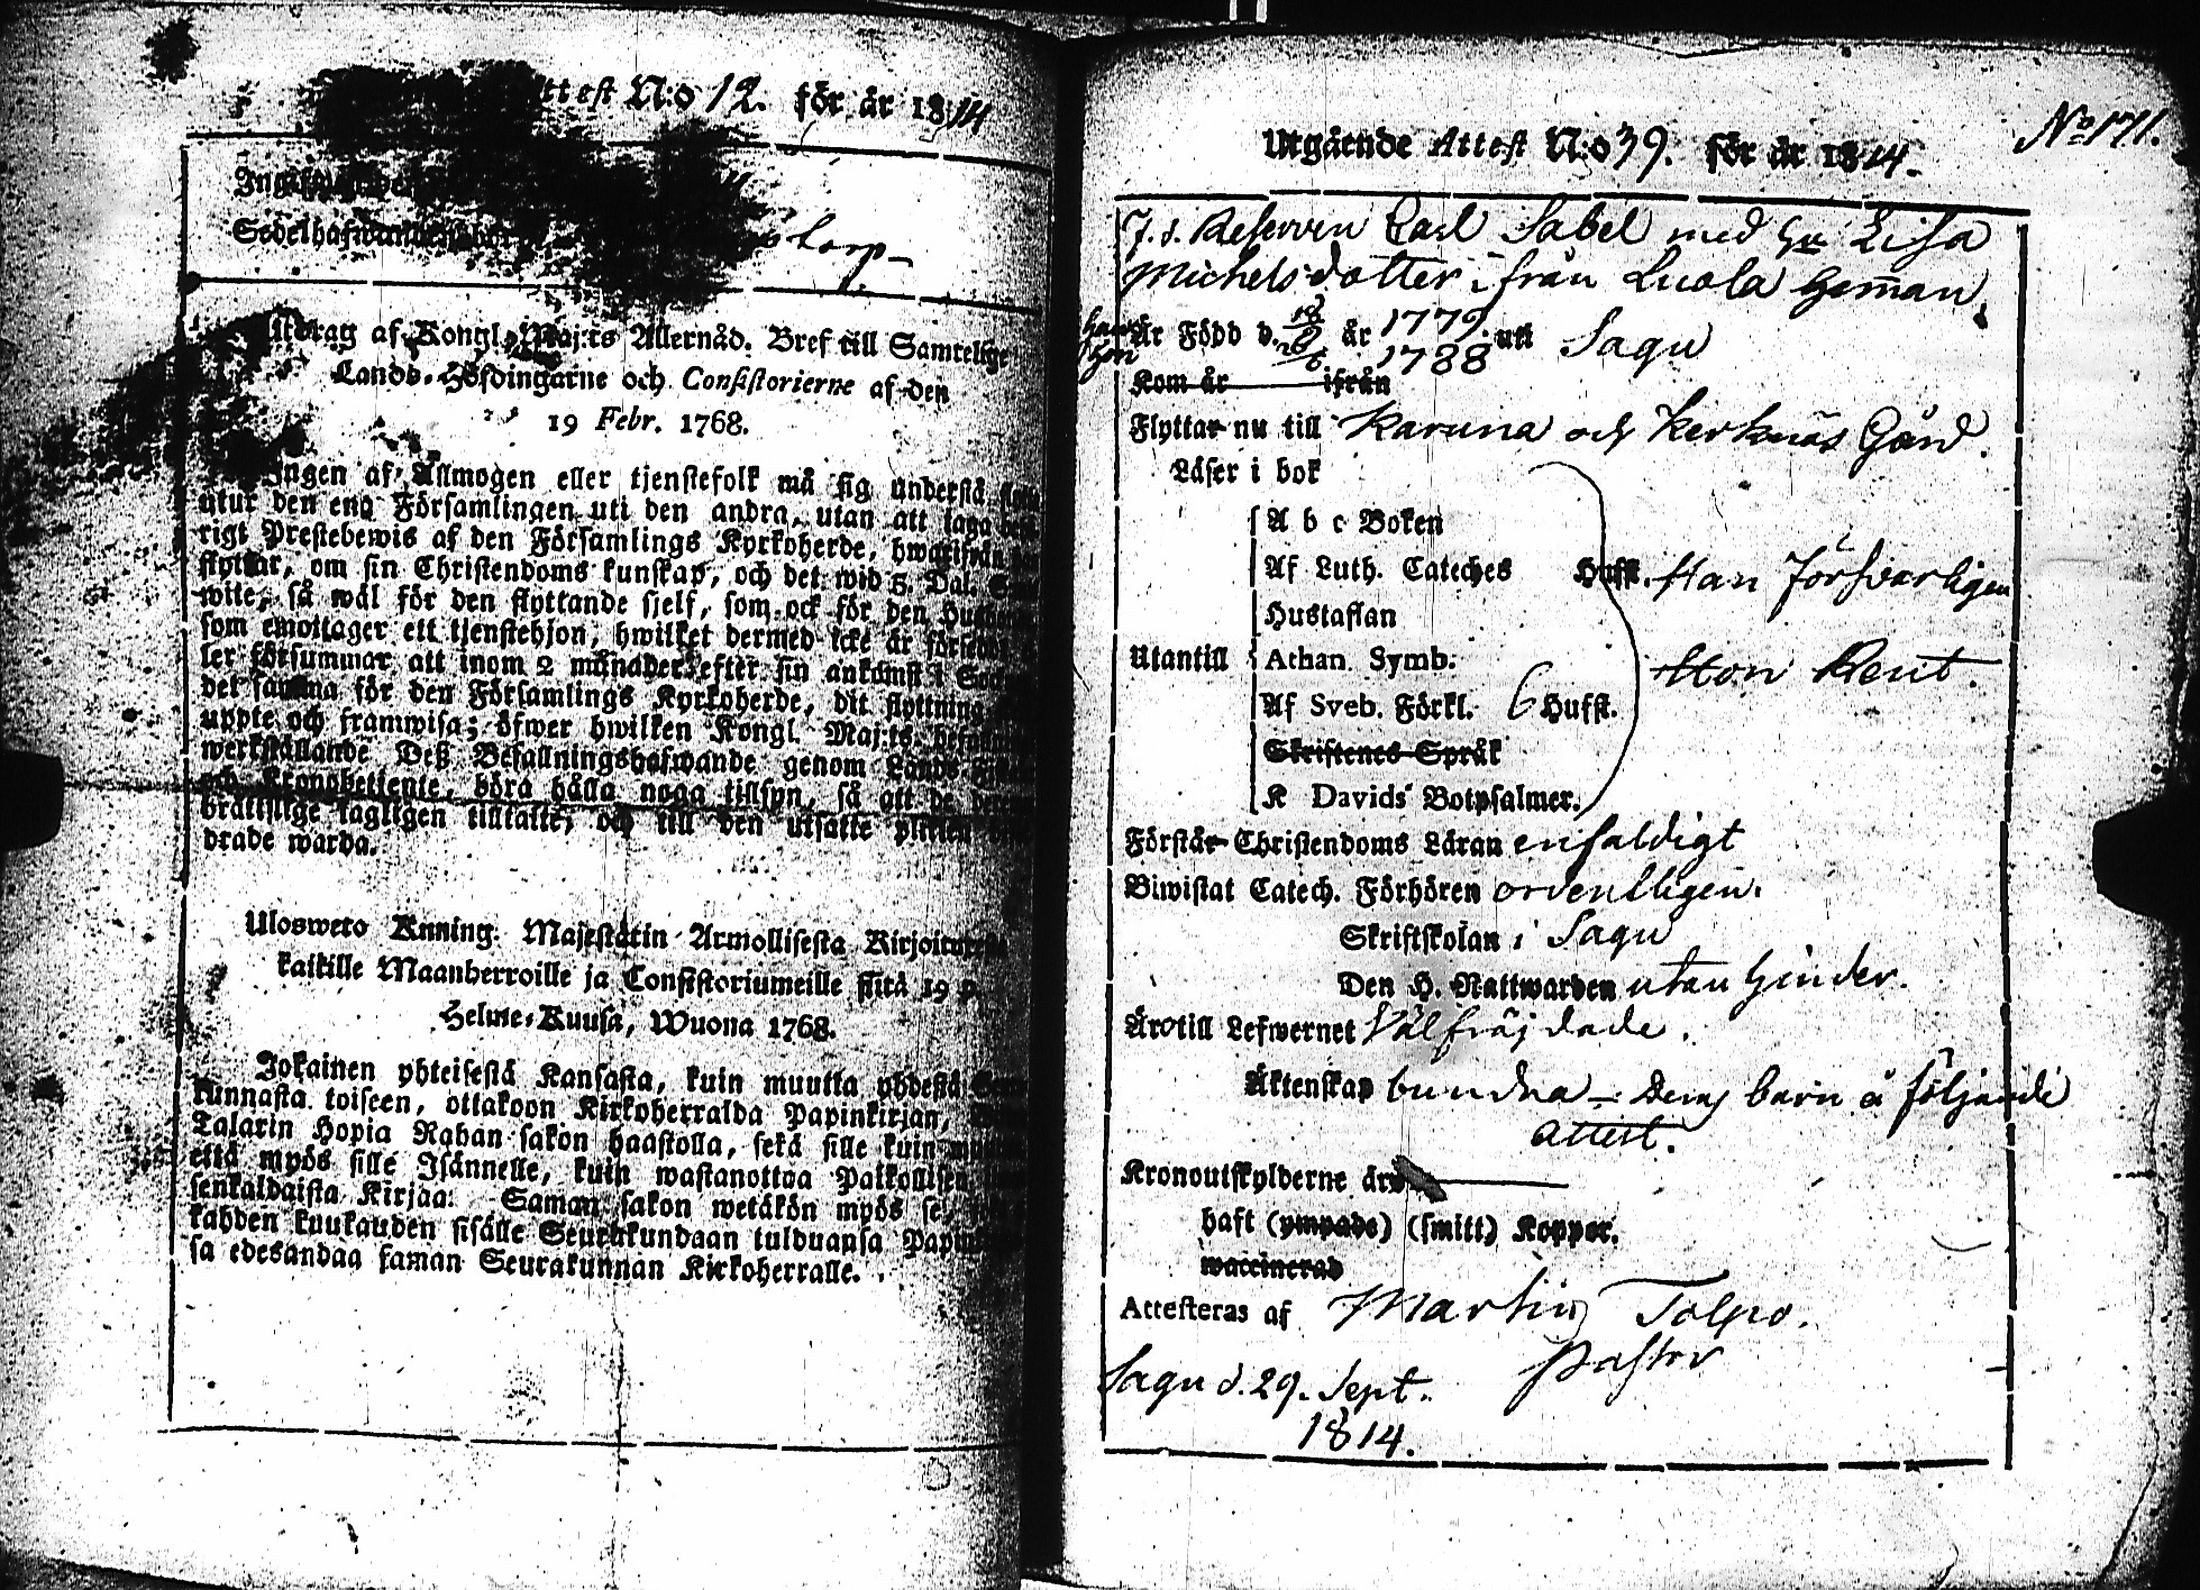 Attest N:o 12. för år 1814
Sedelhafwandens
torp
Utdrag af Kongl. Maj:ts Allernåd. Bref till Samtelige
Lands-Höfdingarne och Consistorierne af den
19 Febr. 1768.
Ingen af Allmogen eller tjenstefolk må sig understå
utur den ena Församlingen uti den andra, utan att taga
rigt Prestebewis af den Församlings Kyrkoherde, hwarifrån
flyttar, om sin Christendoms kunskap, och det wid 3. Dal. S
wite, så wäl för den flyttande sjelf, som ock för den
som emottager ett tjenstehjon, hwilket dermed icke är försedt
ler försummar att inom 2 månader efter sin ankomst i
det samma för den Församlings Kyrkoherde, dit flyttning
uppte och framwisa; öfwer hwilken Kongl. Maj:ts
werkställande Deß Befallningshafwande genom Lands
och Kronobetjente, böra hålla noga tillsyn, så att de
bråttslige lagligen tilltalte, och till den utsatte plikten
drade warda.
Ulosweto Kuning. Majestätin Armollisesta Kirjoituxesta
kaikille Maanherroille ja Consistoriumeille siitä 19 p.
Helme-Kuusa, Wuona 1768.
Jokainen yhteisestä Kansasta, kuin muutta yhdestä
kunnasta toiseen, ottakoon Kirkoherralda Papinkirjan,
Talarin Hopia Rahan sakon haastolla, sekä sille kuin
että myös sille Isännelle, kuin wastanottaa Palkollisen
senkaldaista Kirjaa: Saman sakon wetäkön myös se,
kahden kuukauden sisälle Seurakundaan tulduansa Papin
sa edesandaa saman Seurakunnan Kirkoherralle.
No 171.
Utgående Attest N:o 39. för år 1814.
J. s. Reserven Carl Sabel med Hu Lisa
Michelsdotter ifrån Luola Hemman.
Han
Hon
Är Född d. 18/9 år 1779 uti Sagu
1788
Kom år ifrån
Flyttar nu till Karuna och Kerknäs Gård.
Läser i bok
A b c Boken
Af Luth. Cateches Hufst. Han Försvarligen
Hustaflan
Utantill Athan. Symb: Hon Rent.
Af Sveb. Förkl. 6 Hufst.
Skriftenes Språk
K Davids Botpsalmer.
Förstår Christendoms Läran enfaldigt
Biwistat Catech. Förhören ordentligen.
Skriftskolan i Sagu
Den H. Nattwarden utan hinder.
Äro till Lefwernet Välfräjdade.
Äktenskap bundna – deras barn å följande
attest.
Kronoutskylderne äro
haft (ympade) (smitt) Koppor.
waccinerad
Attesteras af Martin Tolpo.
Pastor
Sagu d. 29. Sept.
1814.